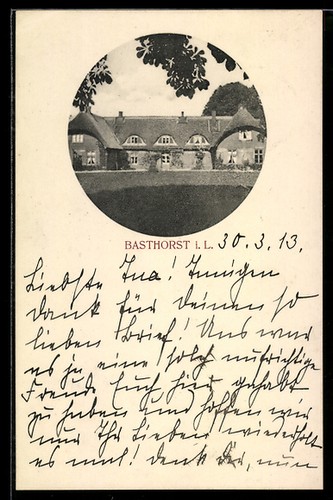 BASTHORST i. L. 30.3.13.
Liebste Ina! Innigen
Dank für Deinen so
lieben Brief! Uns war
es ja eine solch aufrichtige
Freude Euch hier gehabt
zu haben und hoffen wir
nur Ihr Lieben wiederholt
es mal! Denk Dir, nun